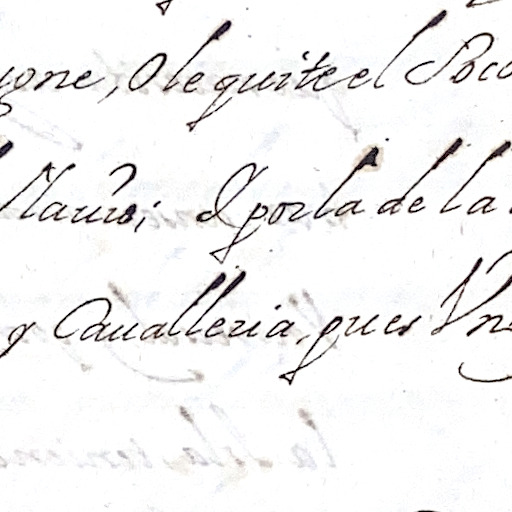 gone, O le quite el Poco
Nauio; O por la de la
y Caualleria, pues Vn